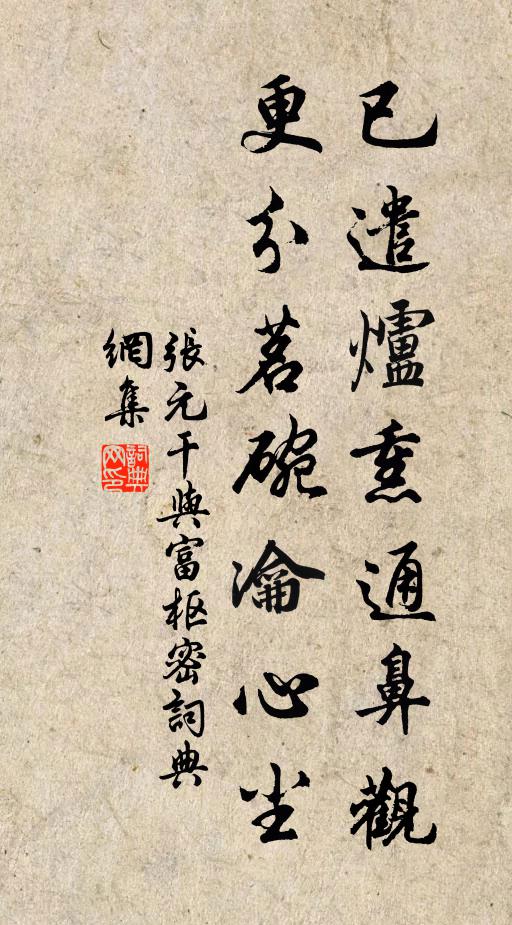 已遣爐熏通鼻觀
更分茗碗瀹心尘
張元干與富枢密詞典
網集
詞典
网印